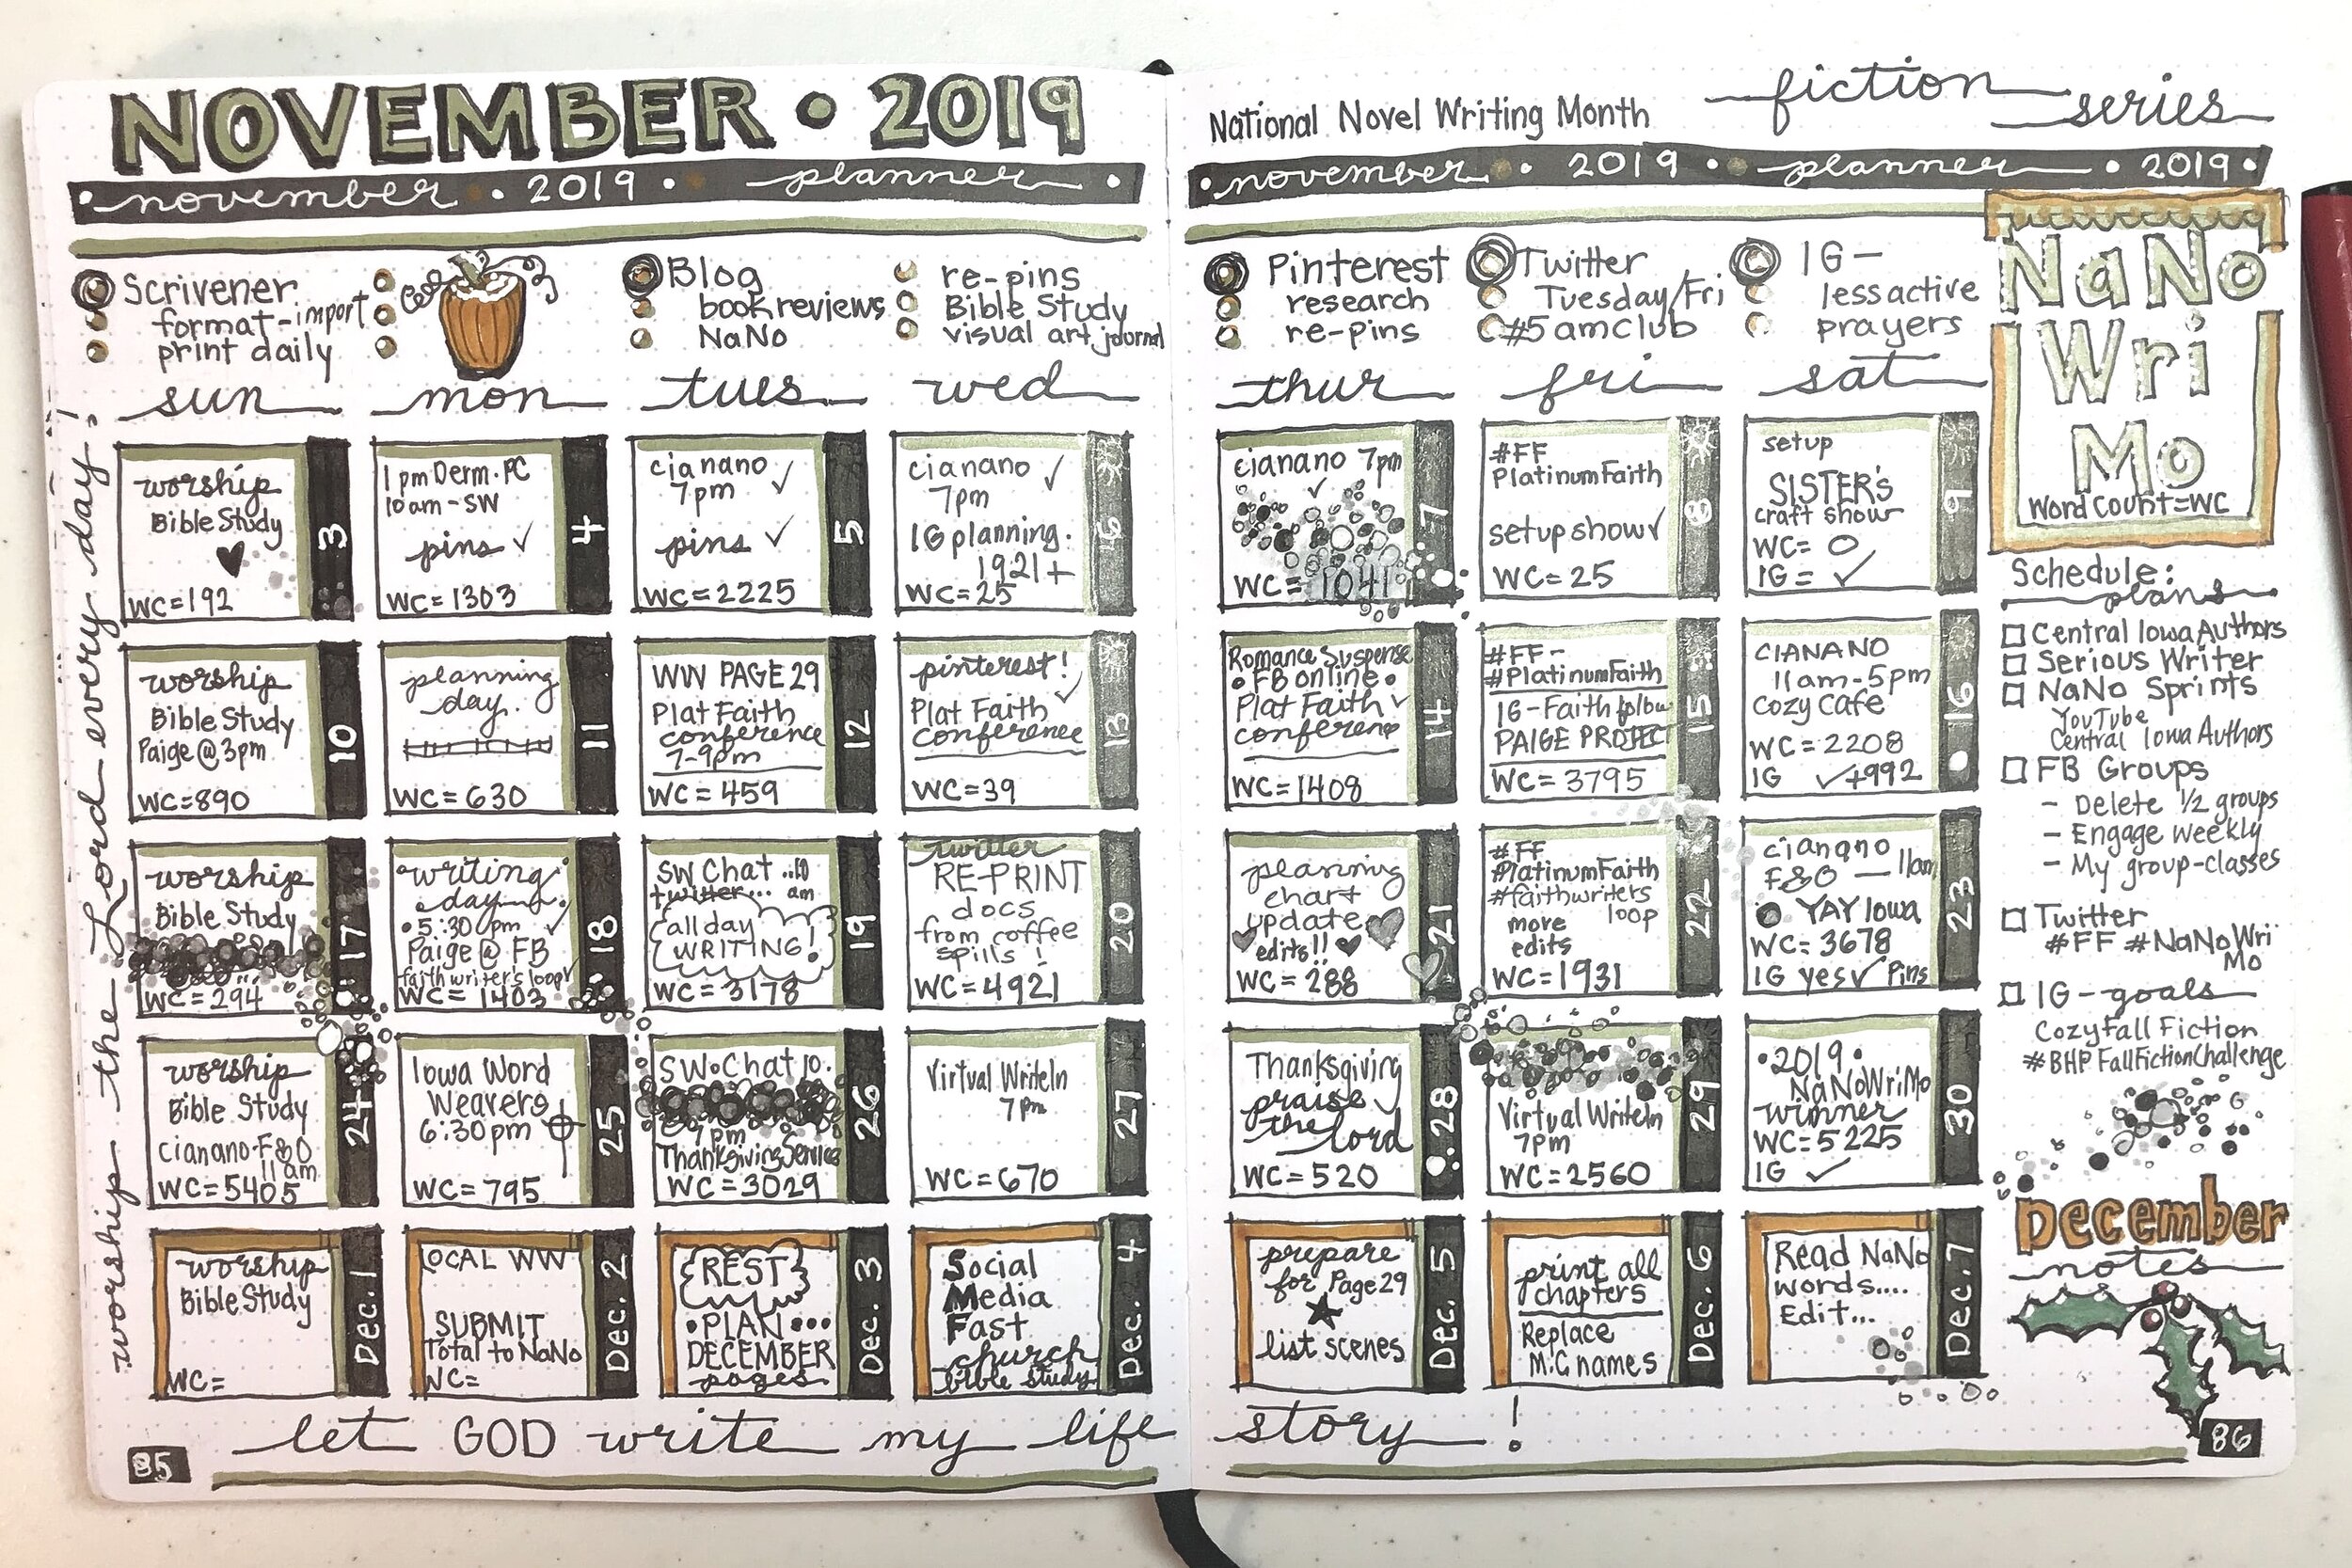 NOVEMBER • 2019
• november • 2019 • planner •
Scrivener
format-import
print daily
Blog
book reviews
NaNo
re-pins
Bible Study
visual art journal
sun
mon
tues
wed
worship the Lord every day!
worship
Bible Study
WC=192
3
1pm Derm. PC
10am-SW
pins ✓
WC=1303
4
cianano ✓
7pm
pins ✓
WC=2225
5
cianano ✓
7pm
IG planning.
1921+
WC=25
worship
Bible Study
Paige @ 3pm
WC=890
10
planning
day.
WC=630
11
WW PAGE 29
Plat Faith
conference
7-9pm
WC=459
12
pinterest!
Plat Faith ✓
conference
WC=39
13
worship
Bible Study
WC=294
17
writing
day
•5:30pm ✓
Paige @ FB
faith writer's loop ✓
WC=1403
18
SW Chat ..10
twitter... am
all day
WRITING!
WC=3178
19
twitter
RE-PRINT
docs
from coffee
spills!
WC=4921
20
worship
Bible Study
cianano-F&O
11am
WC=5405
24
Iowa Word
Weavers
6:30pm
WC=795
25
SW•Chat 10.
7pm
Thanksgiving Service
WC=3029
26
Virtual WriteIn
7pm
WC=670
27
worship
Bible Study
WC=
Dec. 1
LOCAL WW
SUBMIT
Total to NaNo
WC=
Dec. 2
REST
•PLAN•••
DECEMBER
pages
Dec. 3
Social
Media
Fast
church
bible study
Dec. 4
let GOD write my life
85
National Novel Writing Month
fiction series
• november • 2019 • planner • 2019 •
Pinterest
research
re-pins
Twitter
Tuesday/Fri
#5amclub
IG-
less active
prayers
NaNo
Wri
Mo
Word Count=WC
thur
fri
sat
cianano 7pm
✓
WC=1041
7
#FF
PlatinumFaith
setup show ✓
WC=25
8
setup
SISTER'S
craft show
WC=0
IG=✓
9
Romance Suspense
•FB online•
Plat Faith ✓
conference
WC=1408
14
#FF-
#PlatinumFaith
IG-Faith follow
PAIGE PROJECT
WC=3795
15
CIANANO
11am-5pm
Cozy Cafe
WC=2208
IG ✓+992
16
planning
chart
update
edits!!
WC=288
21
#FF
#PlatinumFaith
#faithwriters
loop
more
edits
WC=1931
22
cianano
F&O — 11am
YAY Iowa
WC=3678
IG yes ✓ Pins
23
Thanksgiving
praise
the Lord
WC=520
28
Virtual WriteIn
7pm
WC=2560
29
•2019•
NaNoWriMo
winner
WC=5225
IG ✓
30
prepare
for Page 29
list scenes
Dec. 5
print all
chapters
Replace
M.C names
Dec. 6
Read NaNo
words....
Edit...
Dec. 7
Schedule:
plans
Central Iowa Authors
Serious Writer
NaNo Sprints
YouTube
Central Iowa Authors
FB Groups
- Delete 1/2 groups
- Engage weekly
- My group-classes
Twitter
#FF #NaNoWri
Mo
IG-goals
Cozy Fall Fiction
#BHPFallFictionChallenge
December
notes
story!
86